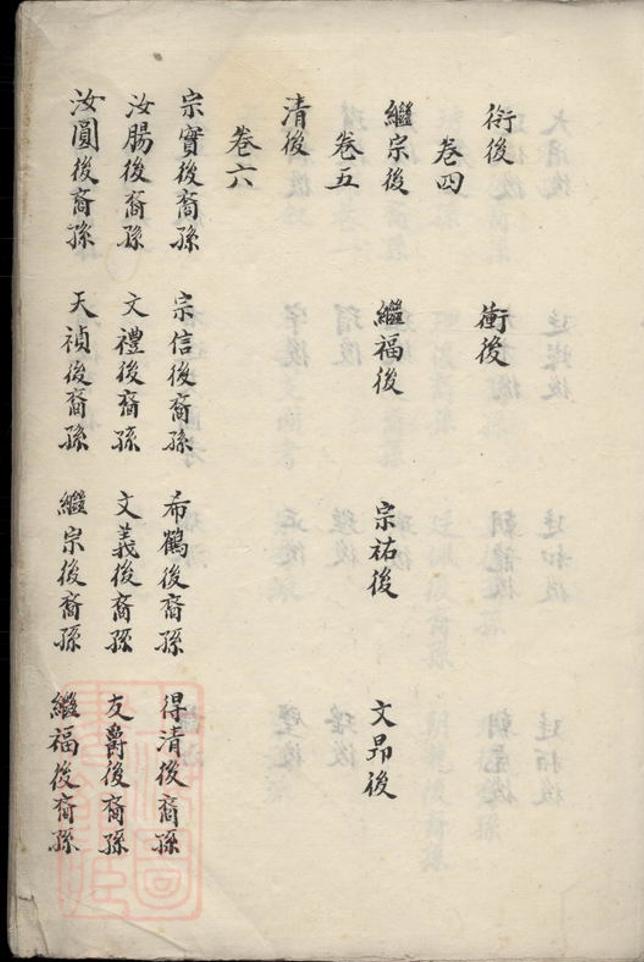 衍後　衝後
卷四
繼宗後　繼福後　宗祐後　文昂後
卷五
清後
卷六
宗實後裔孫　宗信後裔孫　希鶴後裔孫　得清後裔孫
汝腸後裔孫　文禮後裔孫　文義後裔孫　友爵後裔孫
汝圓後裔孫　天禎後裔孫　繼宗後裔孫　繼福後裔孫